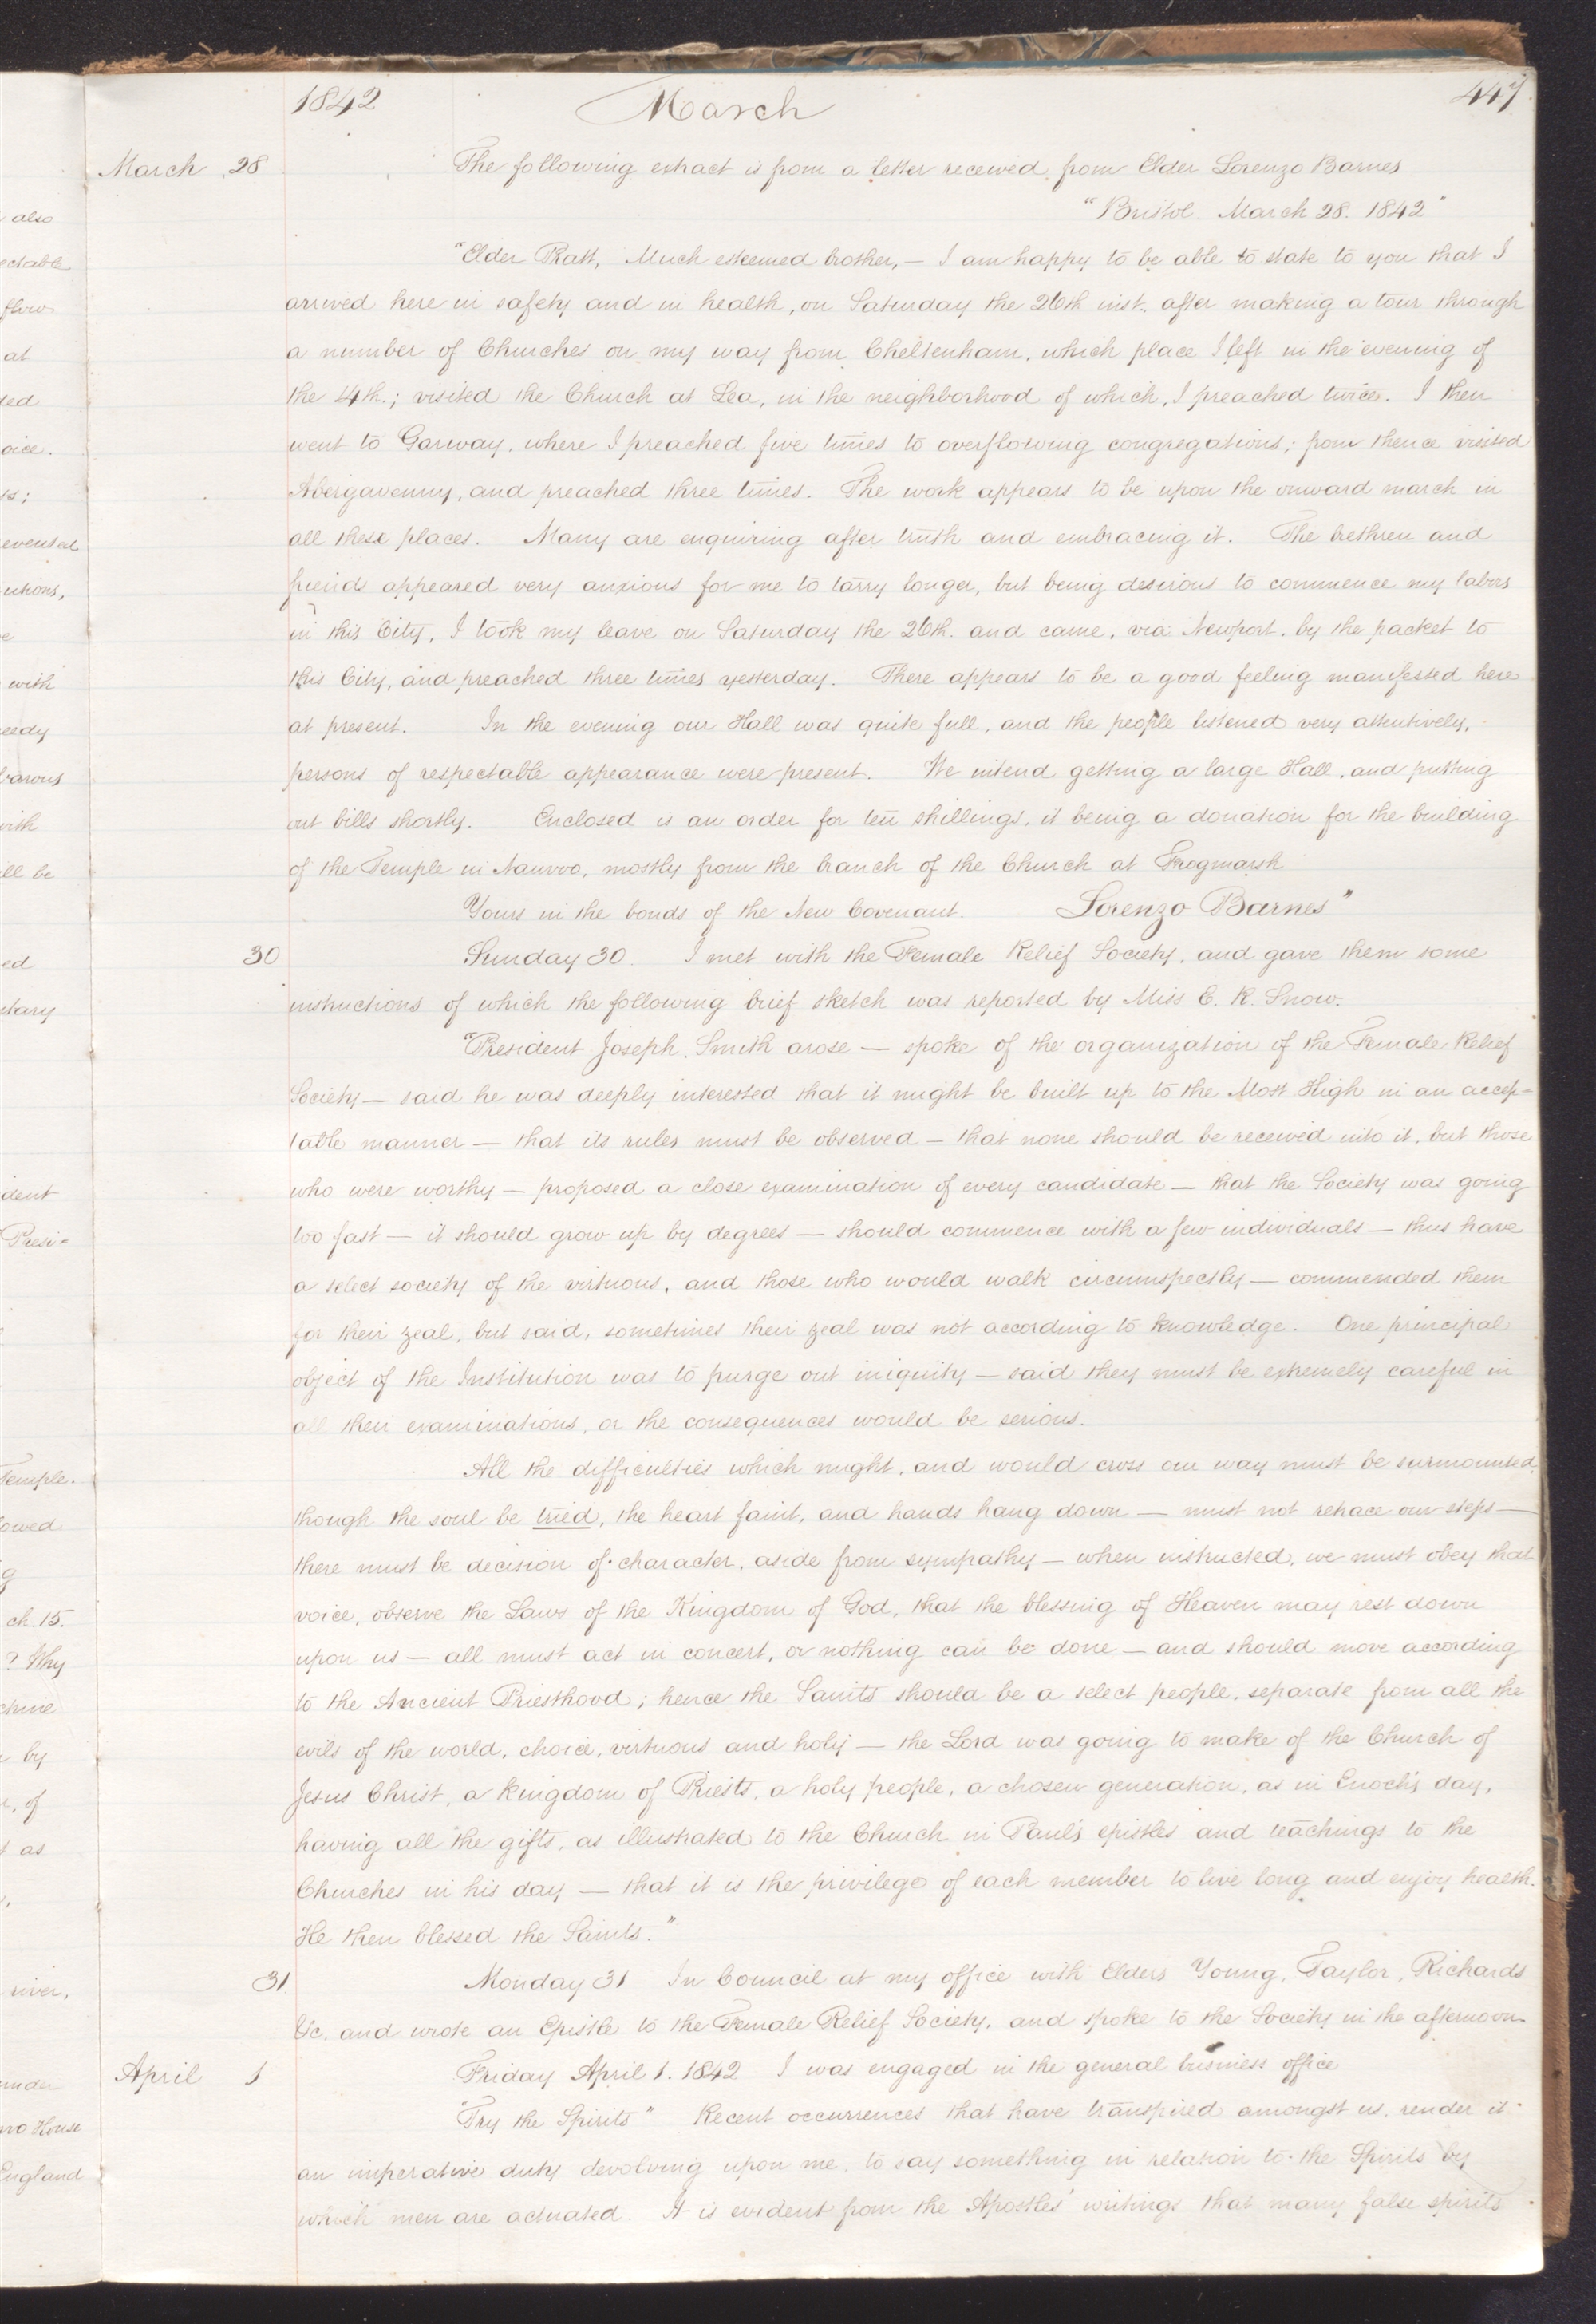 1842 March 447
also
ectable
flow
at
ted
oice.
ts;
evented
utions,
e
with
eedy
barous
with
ill be
ed
ntary
dent
Presi=
Temple.
lowed
g
ch. 15.
? Why
chine
by
, of
t as
river,
under
House
England
March 28 The following extract is from a letter received from Elder Lorenzo Barnes
"Bristol March 28. 1842"
"Elder Pratt, Much esteemed brother,— I am happy to be able to state to you that I
arrived here in safety and in health, on Saturday the 26th inst., after making a tour through
a number of Churches on my way from Cheltenham, which place I left in the evening of
the 4th.; visited the Church at Lea, in the neighborhood of which, I preached twice. I then
went to Garway, where I preached five times to overflowing congregations; from thence visited
Abergavenny, and preached three times. The work appears to be upon the onward march in
all these places. Many are enquiring after truth and embracing it. The brethren and
friends appeared very anxious for me to tarry longer, but being desirous to commence my labors
in this City, I took my leave on Saturday the 26th. and came, via Newport, by the packet to
this City, and preached three times yesterday. There appears to be a good feeling manifested here
at present. In the evening our Hall was quite full, and the people listened very attentively,
persons of respectable appearance were present. We intend getting a large Hall, and putting
out bills shortly. Enclosed is an order for ten shillings, it being a donation for the building
of the Temple in Nauvoo, mostly from the branch of the Church at Frogmarsh
Yours in the bonds of the New Covenant. Lorenzo Barnes"
30 Sunday 30. I met with the Female Relief Society, and gave them some
instructions of which the following brief sketch was reported by Miss E. R. Snow.
"President Joseph Smith arose — spoke of the organization of the Female Relief
Society — said he was deeply interested that it might be built up to the Most High in an accep-
table manner — that its rules must be observed — that none should be received into it, but those
who were worthy — proposed a close examination of every candidate — that the Society was going
too fast — it should grow up by degrees — should commence with a few individuals — thus have
a select society of the virtuous, and those who would walk circumspectly — commended them
for their zeal, but said, sometimes their zeal was not according to knowledge. One principal
object of the Institution was to purge out iniquity — said they must be extremely careful in
all their examinations, or the consequences would be serious.
All the difficulties which might, and would cross our way must be surmounted,
though the soul be tried, the heart faint, and hands hang down — must not retrace our steps —
there must be decision of character, aside from sympathy — when instructed, we must obey that
voice, observe the Laws of the Kingdom of God, that the blessing of Heaven may rest down
upon us — all must act in concert, or nothing can be done — and should move according
to the Ancient Priesthood; hence the Saints should be a select people, separate from all the
evils of the world, choice, virtuous and holy — the Lord was going to make of the Church of
Jesus Christ, a kingdom of Priests, a holy people, a chosen generation, as in Enoch's day,
having all the gifts, as illustrated to the Church in Paul's epistles and teachings to the
Churches in his day — that it is the privilege of each member to live long and enjoy health.
He then blessed the Saints."
31 Monday 31 In Council at my office with Elders Young, Taylor, Richards
&c. and wrote an Epistle to the Female Relief Society, and spoke to the Society in the afternoon
April 1 Friday April 1. 1842 I was engaged in the general business office
"Try the Spirits" Recent occurrences that have transpired amongst us, render it
an imperative duty devolving upon me, to say something in relation to the Spirits by
which men are actuated. It is evident from the Apostles' writings that many false spirits